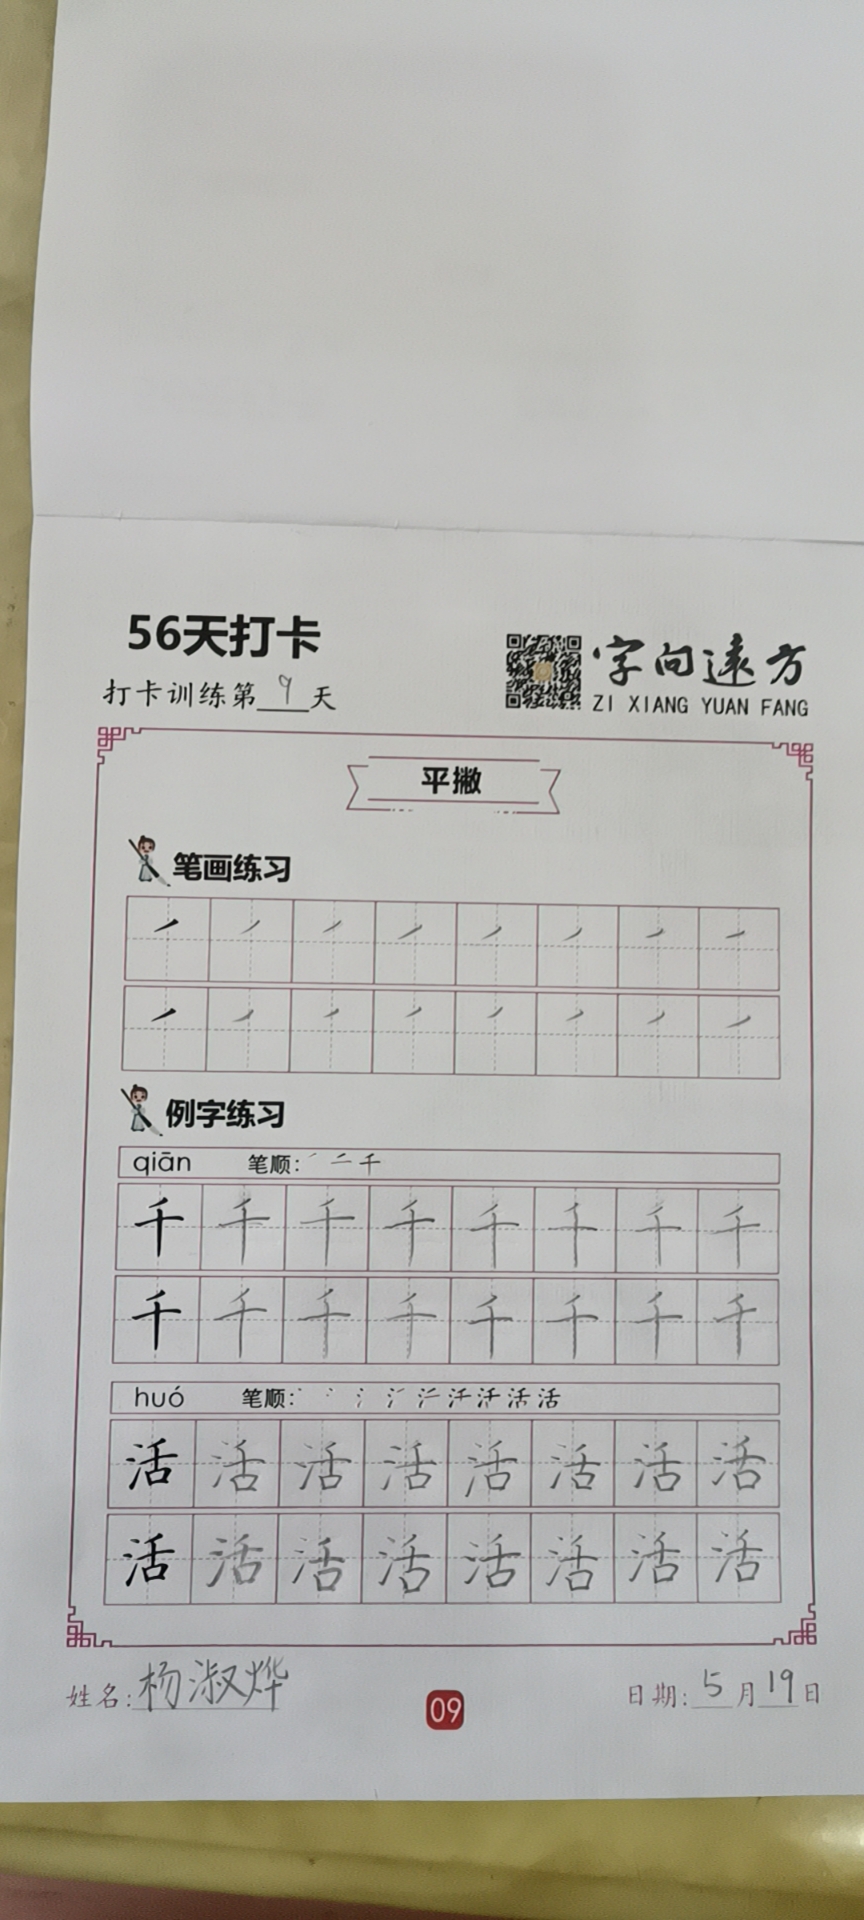 56天打卡
打卡训练第9天
字向远方
ZI XIANG YUAN FANG
平撇
笔画练习
㇒ ㇒ ㇒ ㇒ ㇒ ㇒ ㇒ ㇒
㇒ ㇒ ㇒ ㇒ ㇒ ㇒ ㇒ ㇒
例字练习
qiān 笔顺: ㇒ 二 千
千 千 千 千 千 千 千 千
千 千 千 千 千 千 千 千
huó 笔顺: 活
活 活 活 活 活 活 活 活
活 活 活 活 活 活 活 活
姓名: 杨淑烨
09
日期: 5月19日